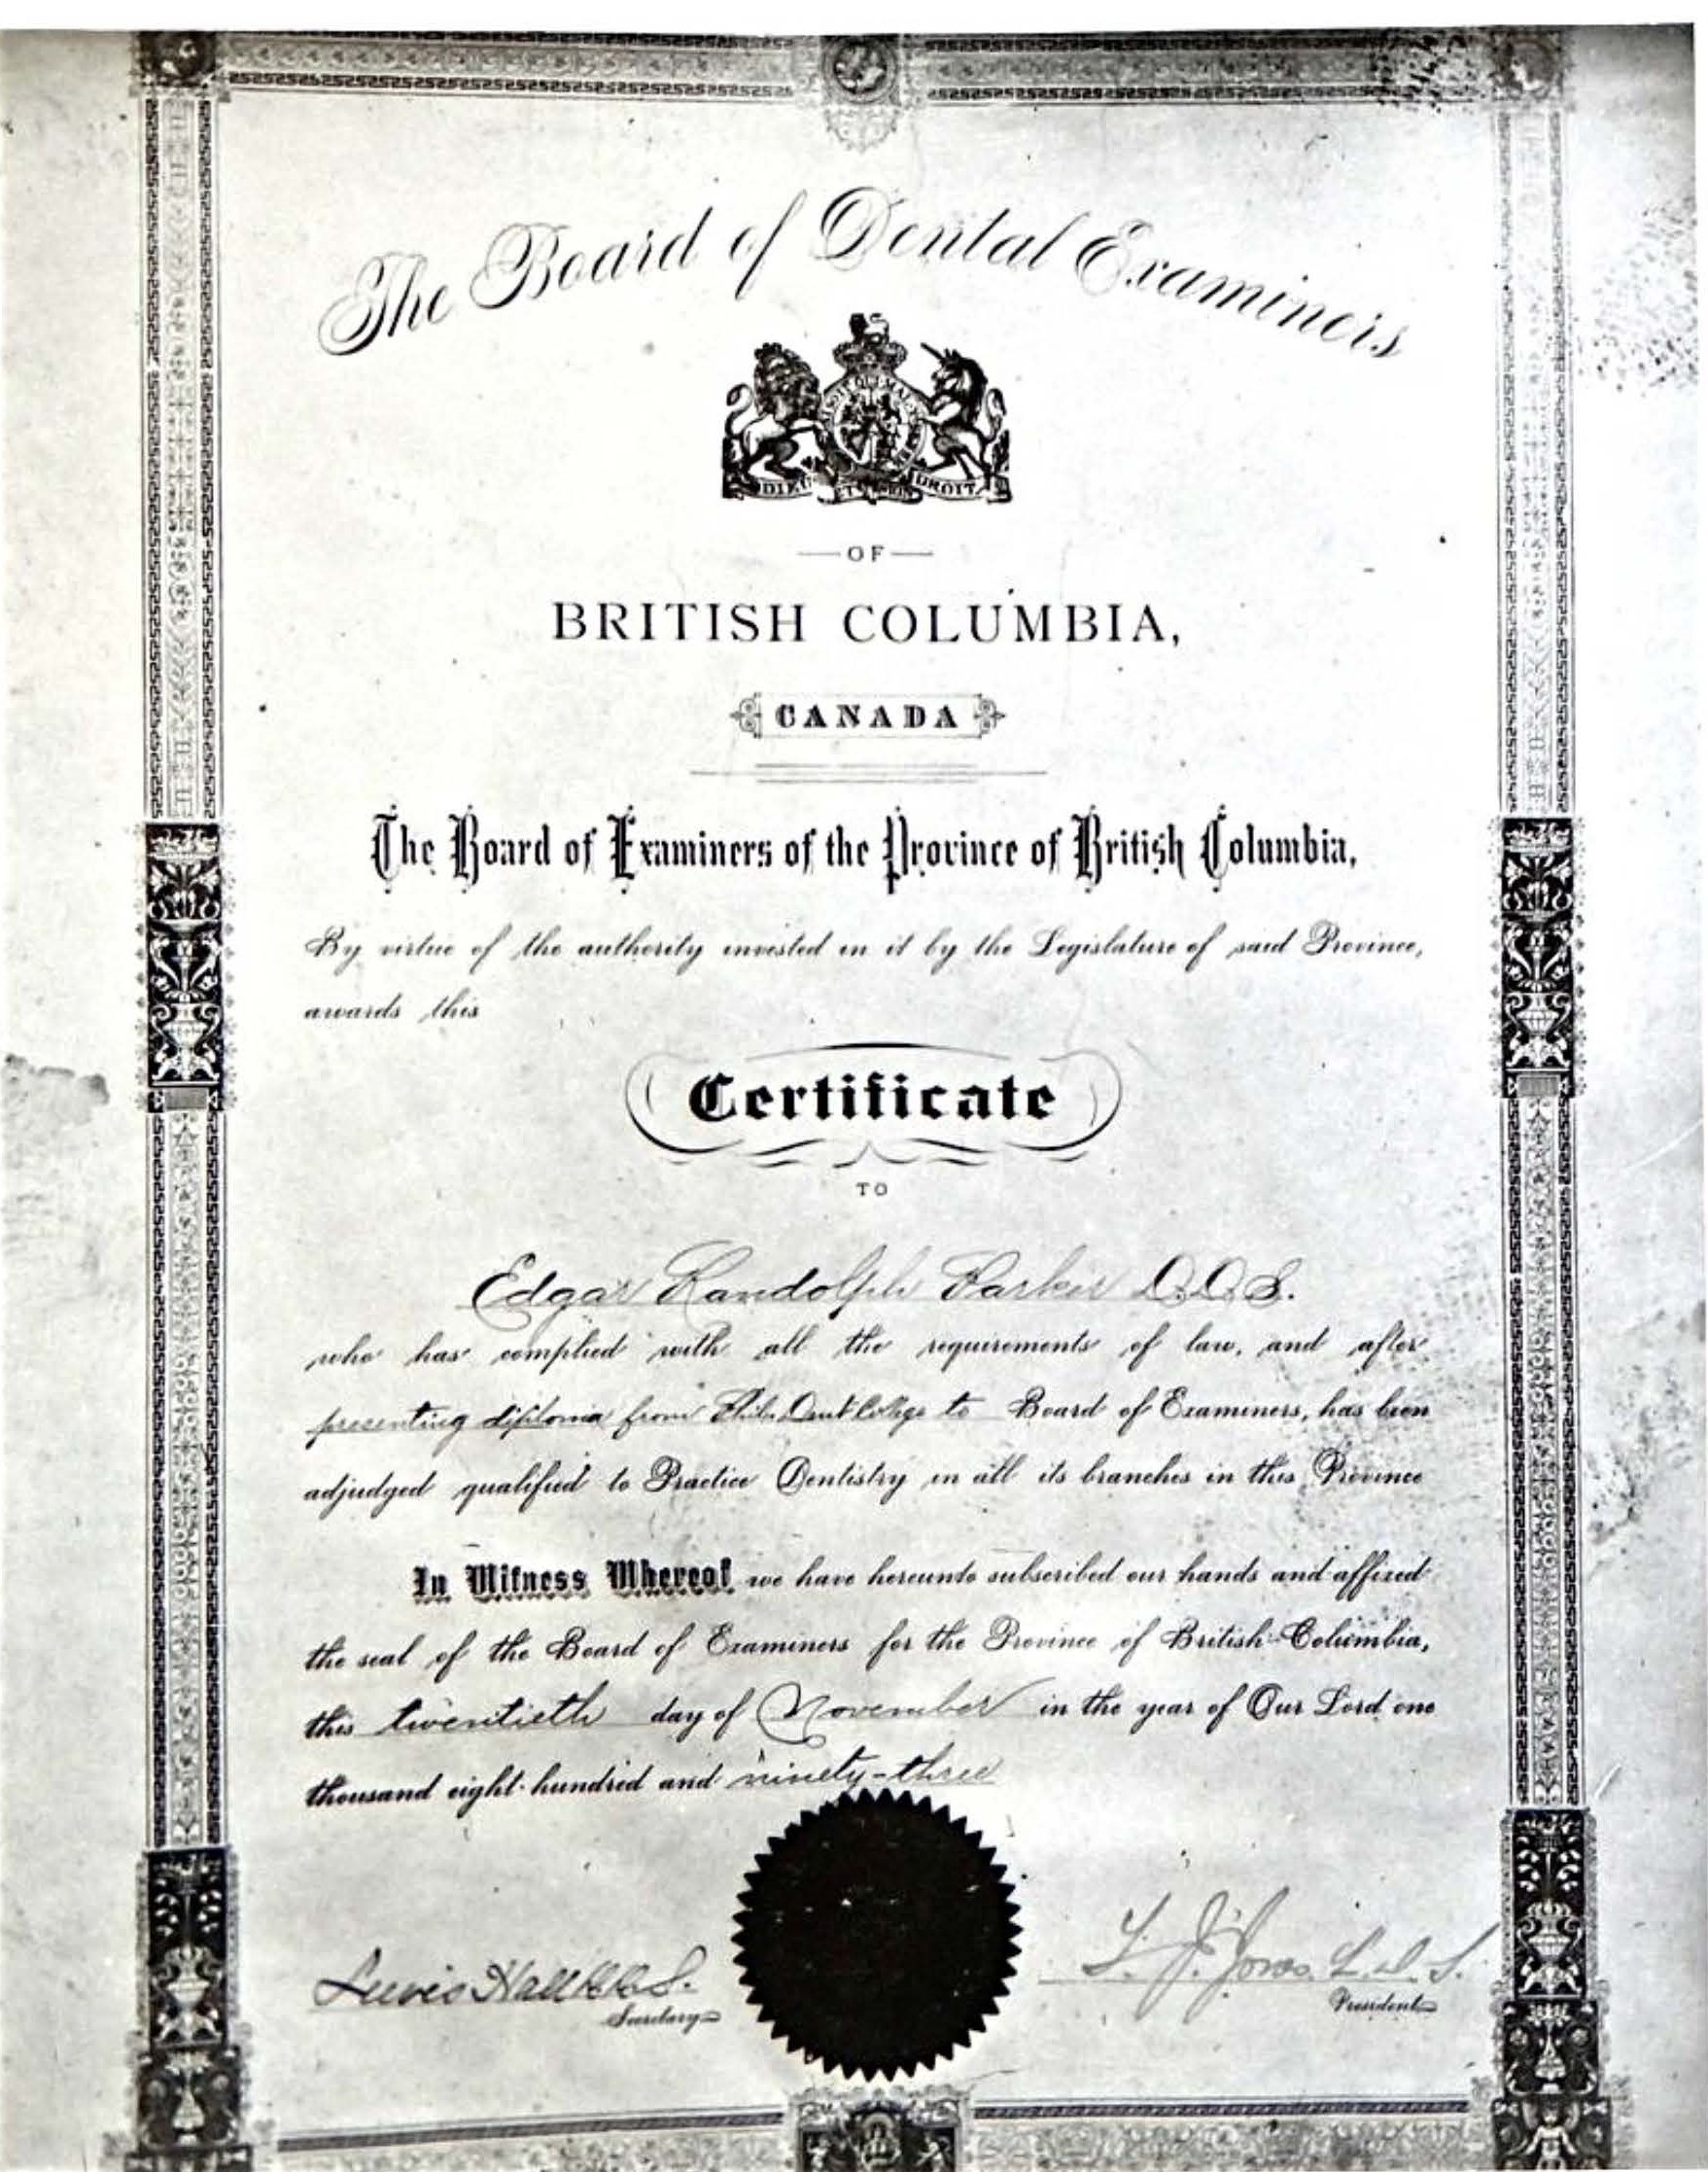 The Board of Dental Examiners
DIEU ET MON DROIT
OF
BRITISH COLUMBIA,
CANADA
The Board of Examiners of the Province of British Columbia,
By virtue of the authority invested in it by the Legislature of said Province,
awards this
Certificate
TO
Edgar Randolph Parker D.D.S.
who has complied with all the requirements of law, and after
presenting diploma from Phila Dent College to Board of Examiners, has been
adjudged qualified to Practice Dentistry in all its branches in this Province
In Witness Whereof we have hereunto subscribed our hands and affixed
the seal of the Board of Examiners for the Province of British Columbia,
this twentieth day of November in the year of Our Lord one
thousand eight hundred and ninety-three
Lewis Hall D.D.S.
Secretary
J. Jones L.D.S.
President